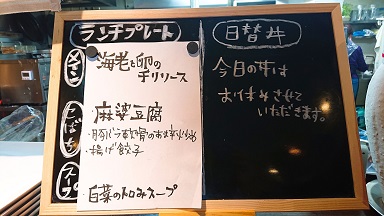 ランチプレート
メイン
海老と卵の
チリソース
こばち
・麻婆豆腐
・揚げ餃子
スープ
白菜のトロみスープ
日替丼
今日の丼は
お休みさせて
いただきます。